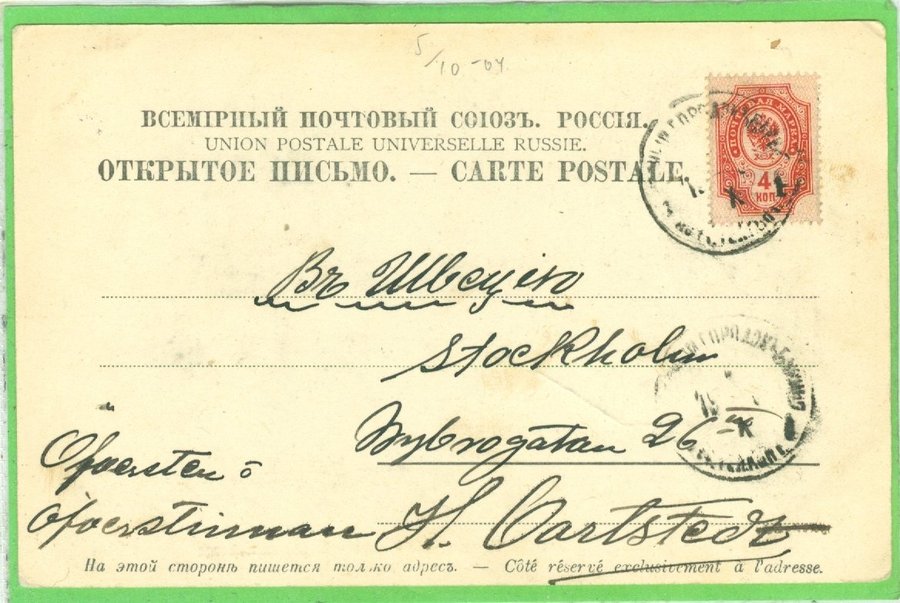 5/10-04
ВСЕМІРНЫЙ ПОЧТОВЫЙ СОЮЗЪ. РОССІЯ.
UNION POSTALE UNIVERSELLE RUSSIE.
ОТКРЫТОЕ ПИСЬМО. — CARTE POSTALE.
ПОЧТОВАЯ МАРКА
4
КОП
Въ Швецію
Stockholm
Nybrogatan 26
Öfversten o
Öfverstinnan H. Cartstedt
На этой сторонѣ пишется только адресъ. — Côté réservé exclusivement à l'adresse.